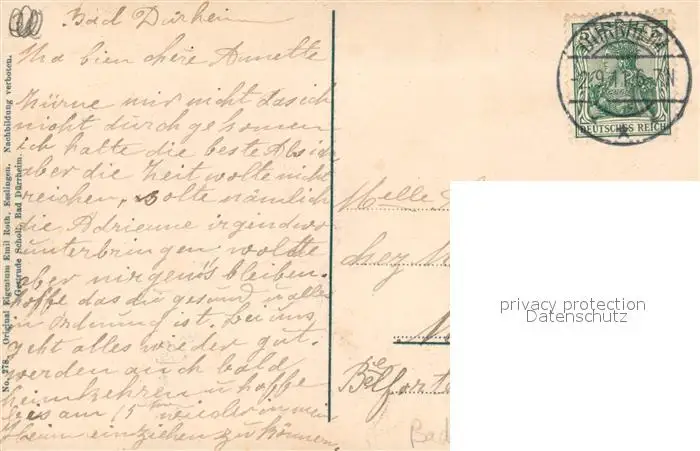 Bad Dürheim
Ma bien chere Annette
Zürne mir nicht das ich
nicht durchgekomen
ich hatte die beste Absicht
aber die Zeit wolte nicht
reichen, wolte nämlich
die Adrienne irgendwo
unterbringen woldte
aber nirgends bleiben.
hoffe das du gesund u alles
in Ordnung ist. bei uns
geht alles wieder gut.
werden auch bald
heimkehren u hoffe
bis am 15 wieder in mein
Heim einziehen zu können.
No. 278. Original Eigentum Emil Roth, Esslingen. Nachbildung verboten.
Gertrude Scholt, Bad Dürrheim.
DÜRRHEIM
DEUTSCHES REICH
Melle
chez
Belforte
Bad
privacy protection
Datenschutz